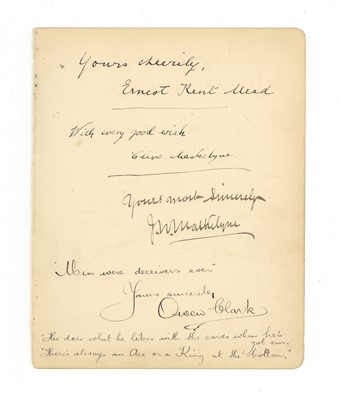 Yours cheerily,
Ernest Kent Mead
With every good wish
Clive Maskelyne.
Yours most Sincerely
J.N. Maskelyne
"Men were deceivers ever"
Yours sincerely
Owen Clark
"He does what he likes with the cards when he's
got 'em.
"There's always an Ace or a King at the bottom."